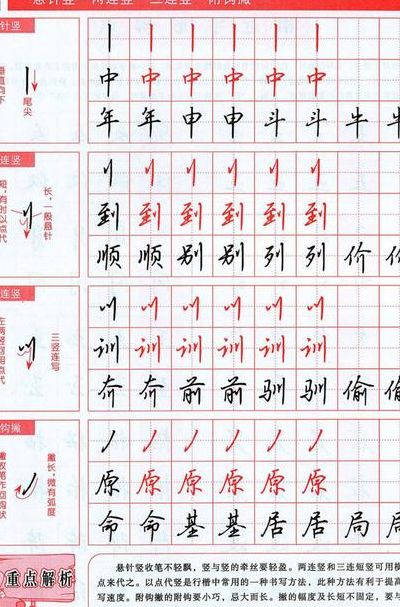 悬针竖 两连竖 三连竖 附钩撇
针竖
垂直向下
尾尖
丨 丨 丨 丨 丨 丨
中 中 中 中 中 中
年 年 申 申 斗 斗 牛 牛
连竖
短,有时以点代
长,一般悬针
到 到 到 到 到 到
顺 顺 别 别 列 列 价 价
连竖
左两竖可用点代
三竖连写
训 训 训 训 训 训
夼 夼 前 前 驯 驯 偷 偷
钩撇
撇收笔作回钩状
撇长,微有弧度
丿 丿 丿 丿 丿 丿
原 原 原 原 原 原
命 命 基 基 居 居 局 局
重点解析
悬针竖收笔不轻飘,竖与竖的牵丝要轻盈。两连竖和三连短竖可用横
点来代之。以点代竖是行楷中常用的一种书写方法,此种方法有利于提高
写速度。附钩撇的附钩要小巧,总大而长。撇的幅度及长短不固定,要与